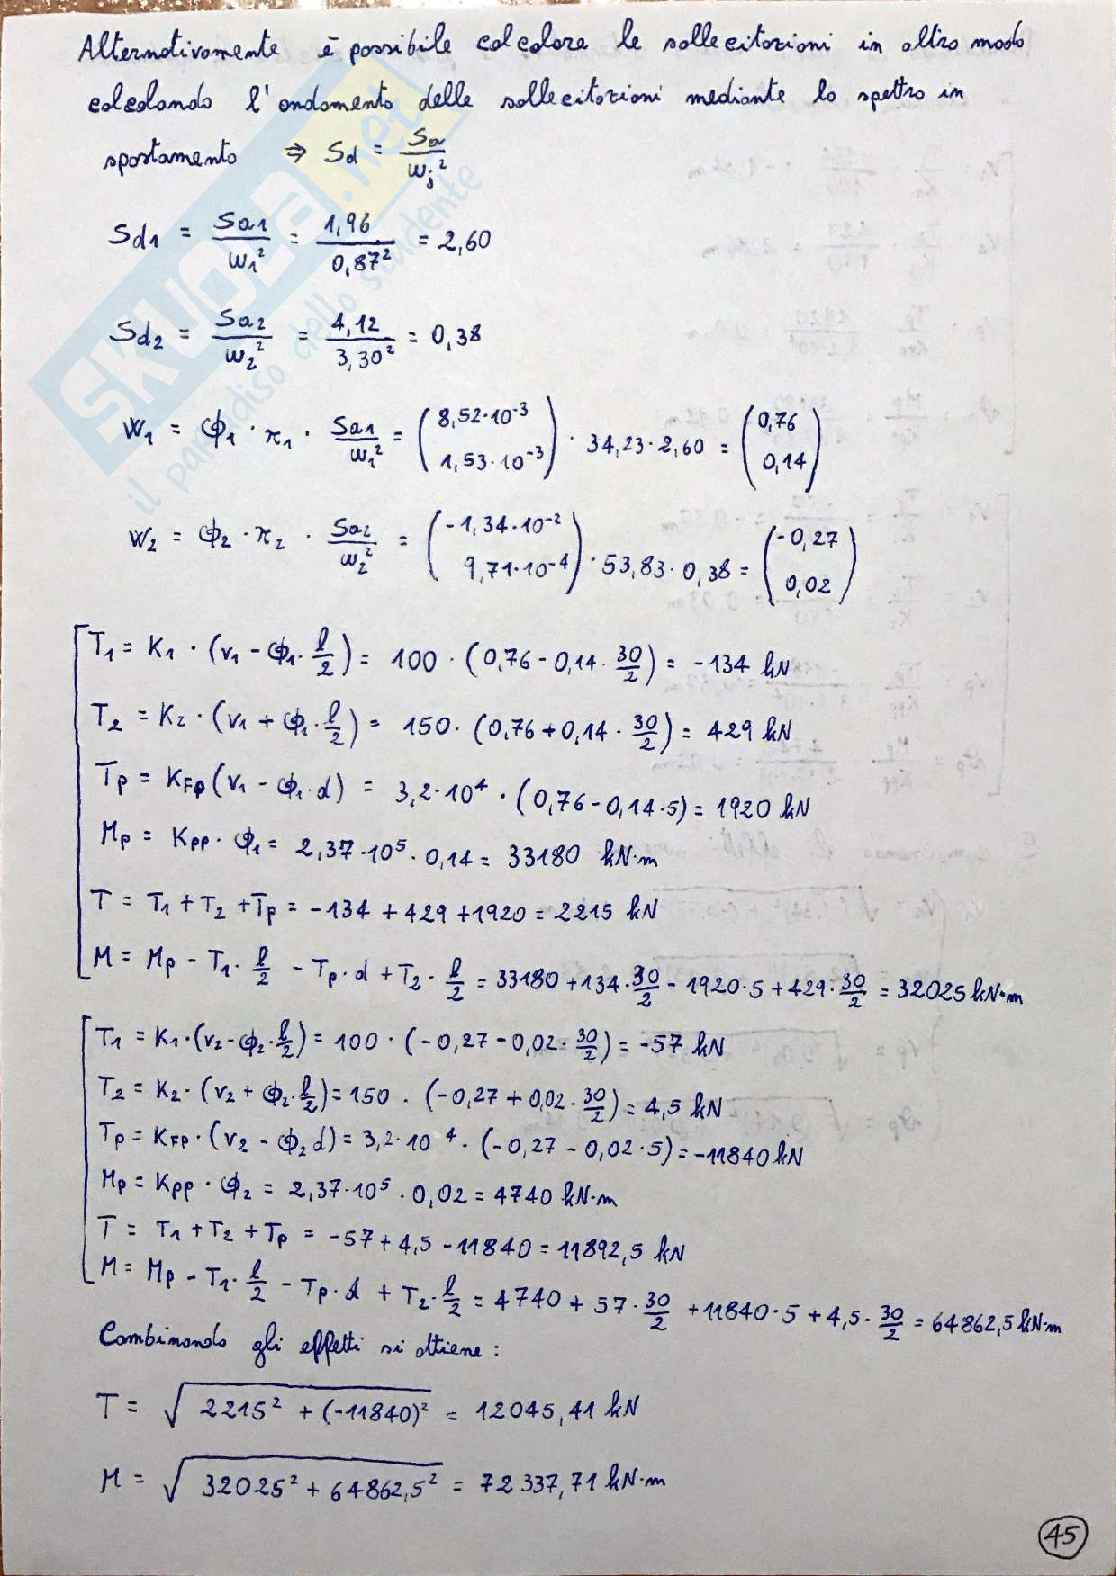 Alternativamente è possibile calcolare le sollecitazioni in altro modo
calcolando l'andamento delle sollecitazioni mediante lo spettro in
spostamento ⇒ Sd = Sa/ωj²
Sd1 = Sa1/ω1² = 1,96/0,87² = 2,60
Sd2 = Sa2/ω2² = 4,12/3,30² = 0,38
W1 = ϕ1 · π1 · Sa1/ω1² = (8,52·10⁻³ 1,53·10⁻³) · 34,23 · 2,60 = (0,76 0,14)
W2 = ϕ2 · π2 · Sa2/ω2² = (-1,34·10⁻² 9,71·10⁻⁴) · 53,83 · 0,38 = (-0,27 0,02)
T1 = K1 · (v1 - ϕ1 · l/2) = 100 · (0,76 - 0,14 · 30/2) = -134 kN
T2 = K2 · (v1 + ϕ1 · l/2) = 150 · (0,76 + 0,14 · 30/2) = 429 kN
Tp = KFp (v1 - ϕ1 · d) = 3,2·10⁴ · (0,76 - 0,14·5) = 1920 kN
Mp = Kpp · ϕ1 = 2,37·10⁵ · 0,14 = 33180 kN·m
T = T1 + T2 + Tp = -134 + 429 + 1920 = 2215 kN
M = Mp - T1 · l/2 - Tp·d + T2 · l/2 = 33180 + 134 · 30/2 - 1920·5 + 429 · 30/2 = 32025 kN·m
T1 = K1·(v2 - ϕ2 · l/2) = 100 · (-0,27 - 0,02 · 30/2) = -57 kN
T2 = K2 · (v2 + ϕ2 · l/2) = 150 · (-0,27 + 0,02 · 30/2) = 4,5 kN
Tp = KFp · (v2 - ϕ2 d) = 3,2·10⁴ · (-0,27 - 0,02·5) = -11840 kN
Mp = Kpp · ϕ2 = 2,37·10⁵ · 0,02 = 4740 kN·m
T = T1 + T2 + Tp = -57 + 4,5 - 11840 = 11892,5 kN
M = Mp - T1 · l/2 - Tp · d + T2 · l/2 = 4740 + 57 · 30/2 + 11840·5 + 4,5 · 30/2 = 64862,5 kN·m
Combinando gli effetti si ottiene:
T = √(2215² + (-11840)²) = 12045,41 kN
M = √(32025² + 64862,5²) = 72337,71 kN·m
45
SKUOLA.net
il paradiso dello studente